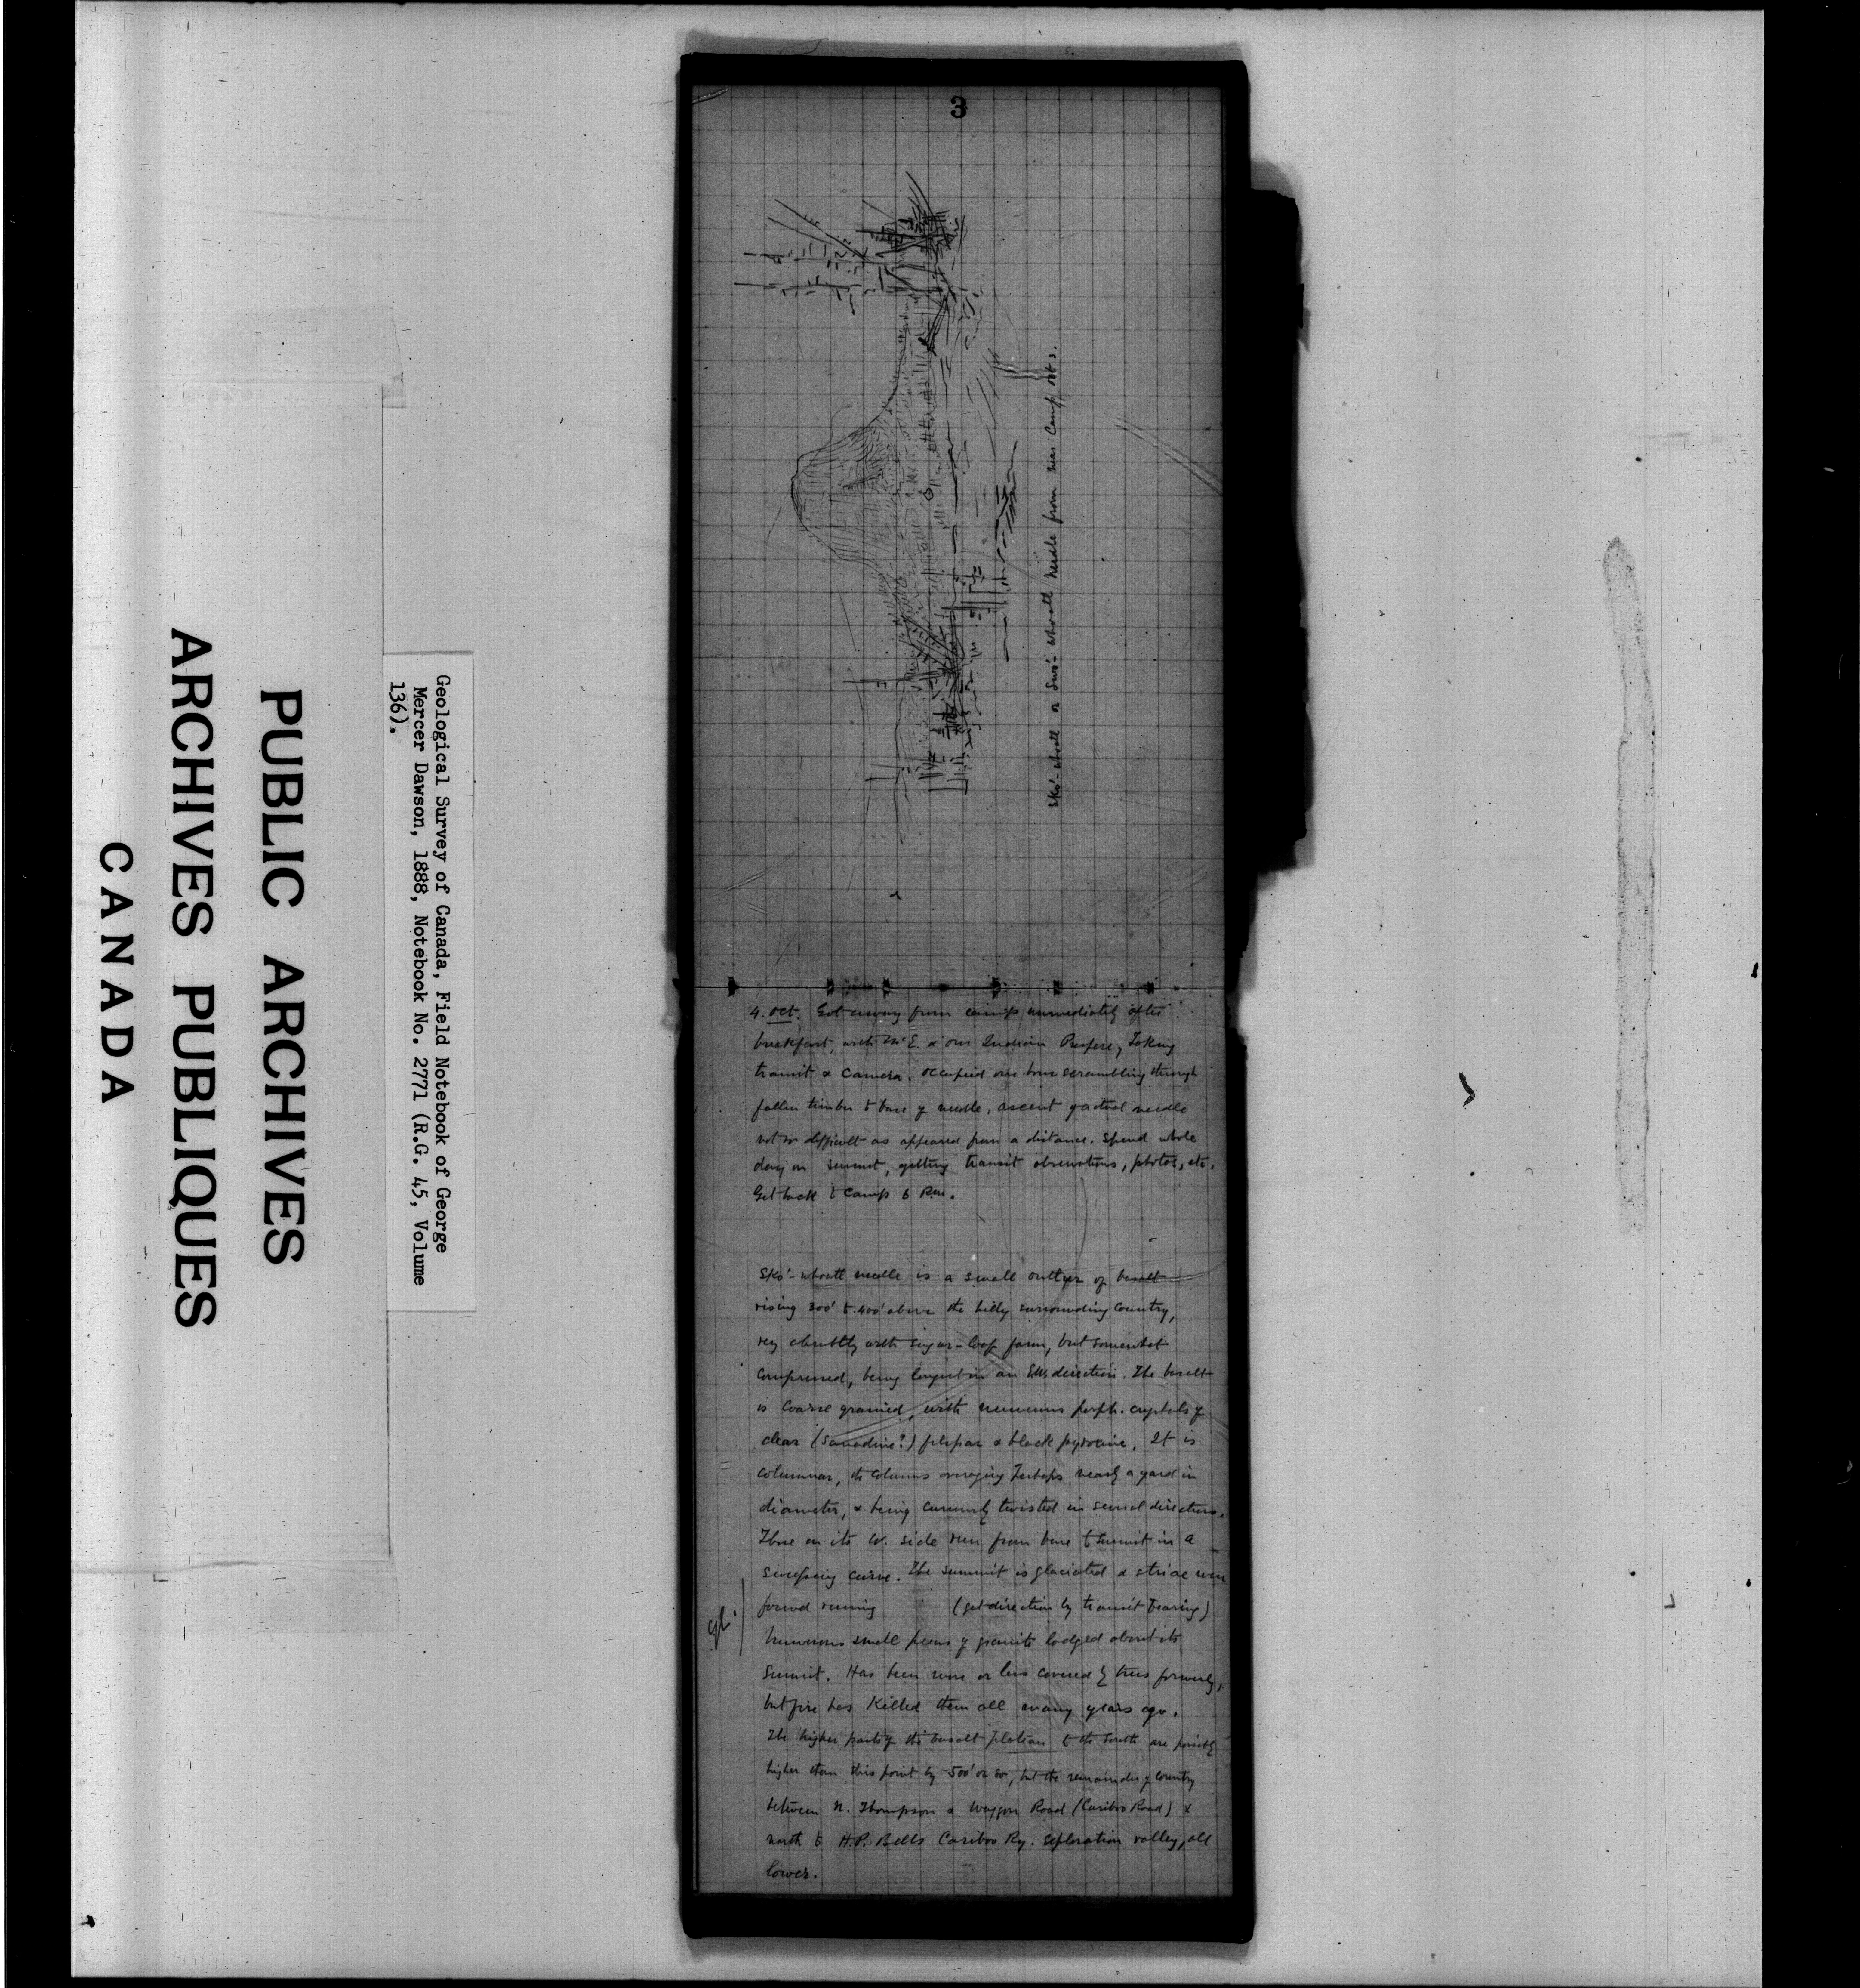 PUBLIC ARCHIVES
ARCHIVES PUBLIQUES
CANADA
Geological Survey of Canada, Field Notebook of George
Mercer Dawson, 1888, Notebook No. 2771 (R.G. 45, Volume
136).
3
Sko'-whoatl or Needle from near Camp Oct 3.
4. Oct. Got away from camp immediately after
breakfast, with McE. & our Indian taking
transit & camera. Occupied one hour scrambling through
fallen timber to base of needle, ascent of actual needle
not so difficult as appeared from a distance. Spend whole
day on summit, getting transit observations, photos, etc.
Get back to Camp 6 P.m.
Sko'-whoatl needle is a small outlyer of basalt
rising 300' to 400' above the hilly surrounding country,
very abruptly with sugar-loaf form, but somewhat
compressed, being longest in an direction. The basalt
is coarse grained, with numerous porph. crystals of
clear (Sanadine?) felspar & black pyroxine. It is
columnar, the columns averaging perhaps nearly a yard in
diameter, & being curiously twisted in several directions.
Those on its W. side run from base to summit in a
sweeping curve. The summit is glaciated & striae were
gl.
found running (get direction by transit bearing)
Numerous small pieces of granite lodged about its
summit. Has been more or less covered by trees formerly,
but fire has killed them all many years ago.
The higher parts of the basalt plateau to the south are
higher than this point by 500' or so, but the remainder of country
between N. Thompson & Waggon Road (Cariboo Road) &
north to H.P. Bells Cariboo Ry. exploration valley, all
lower.